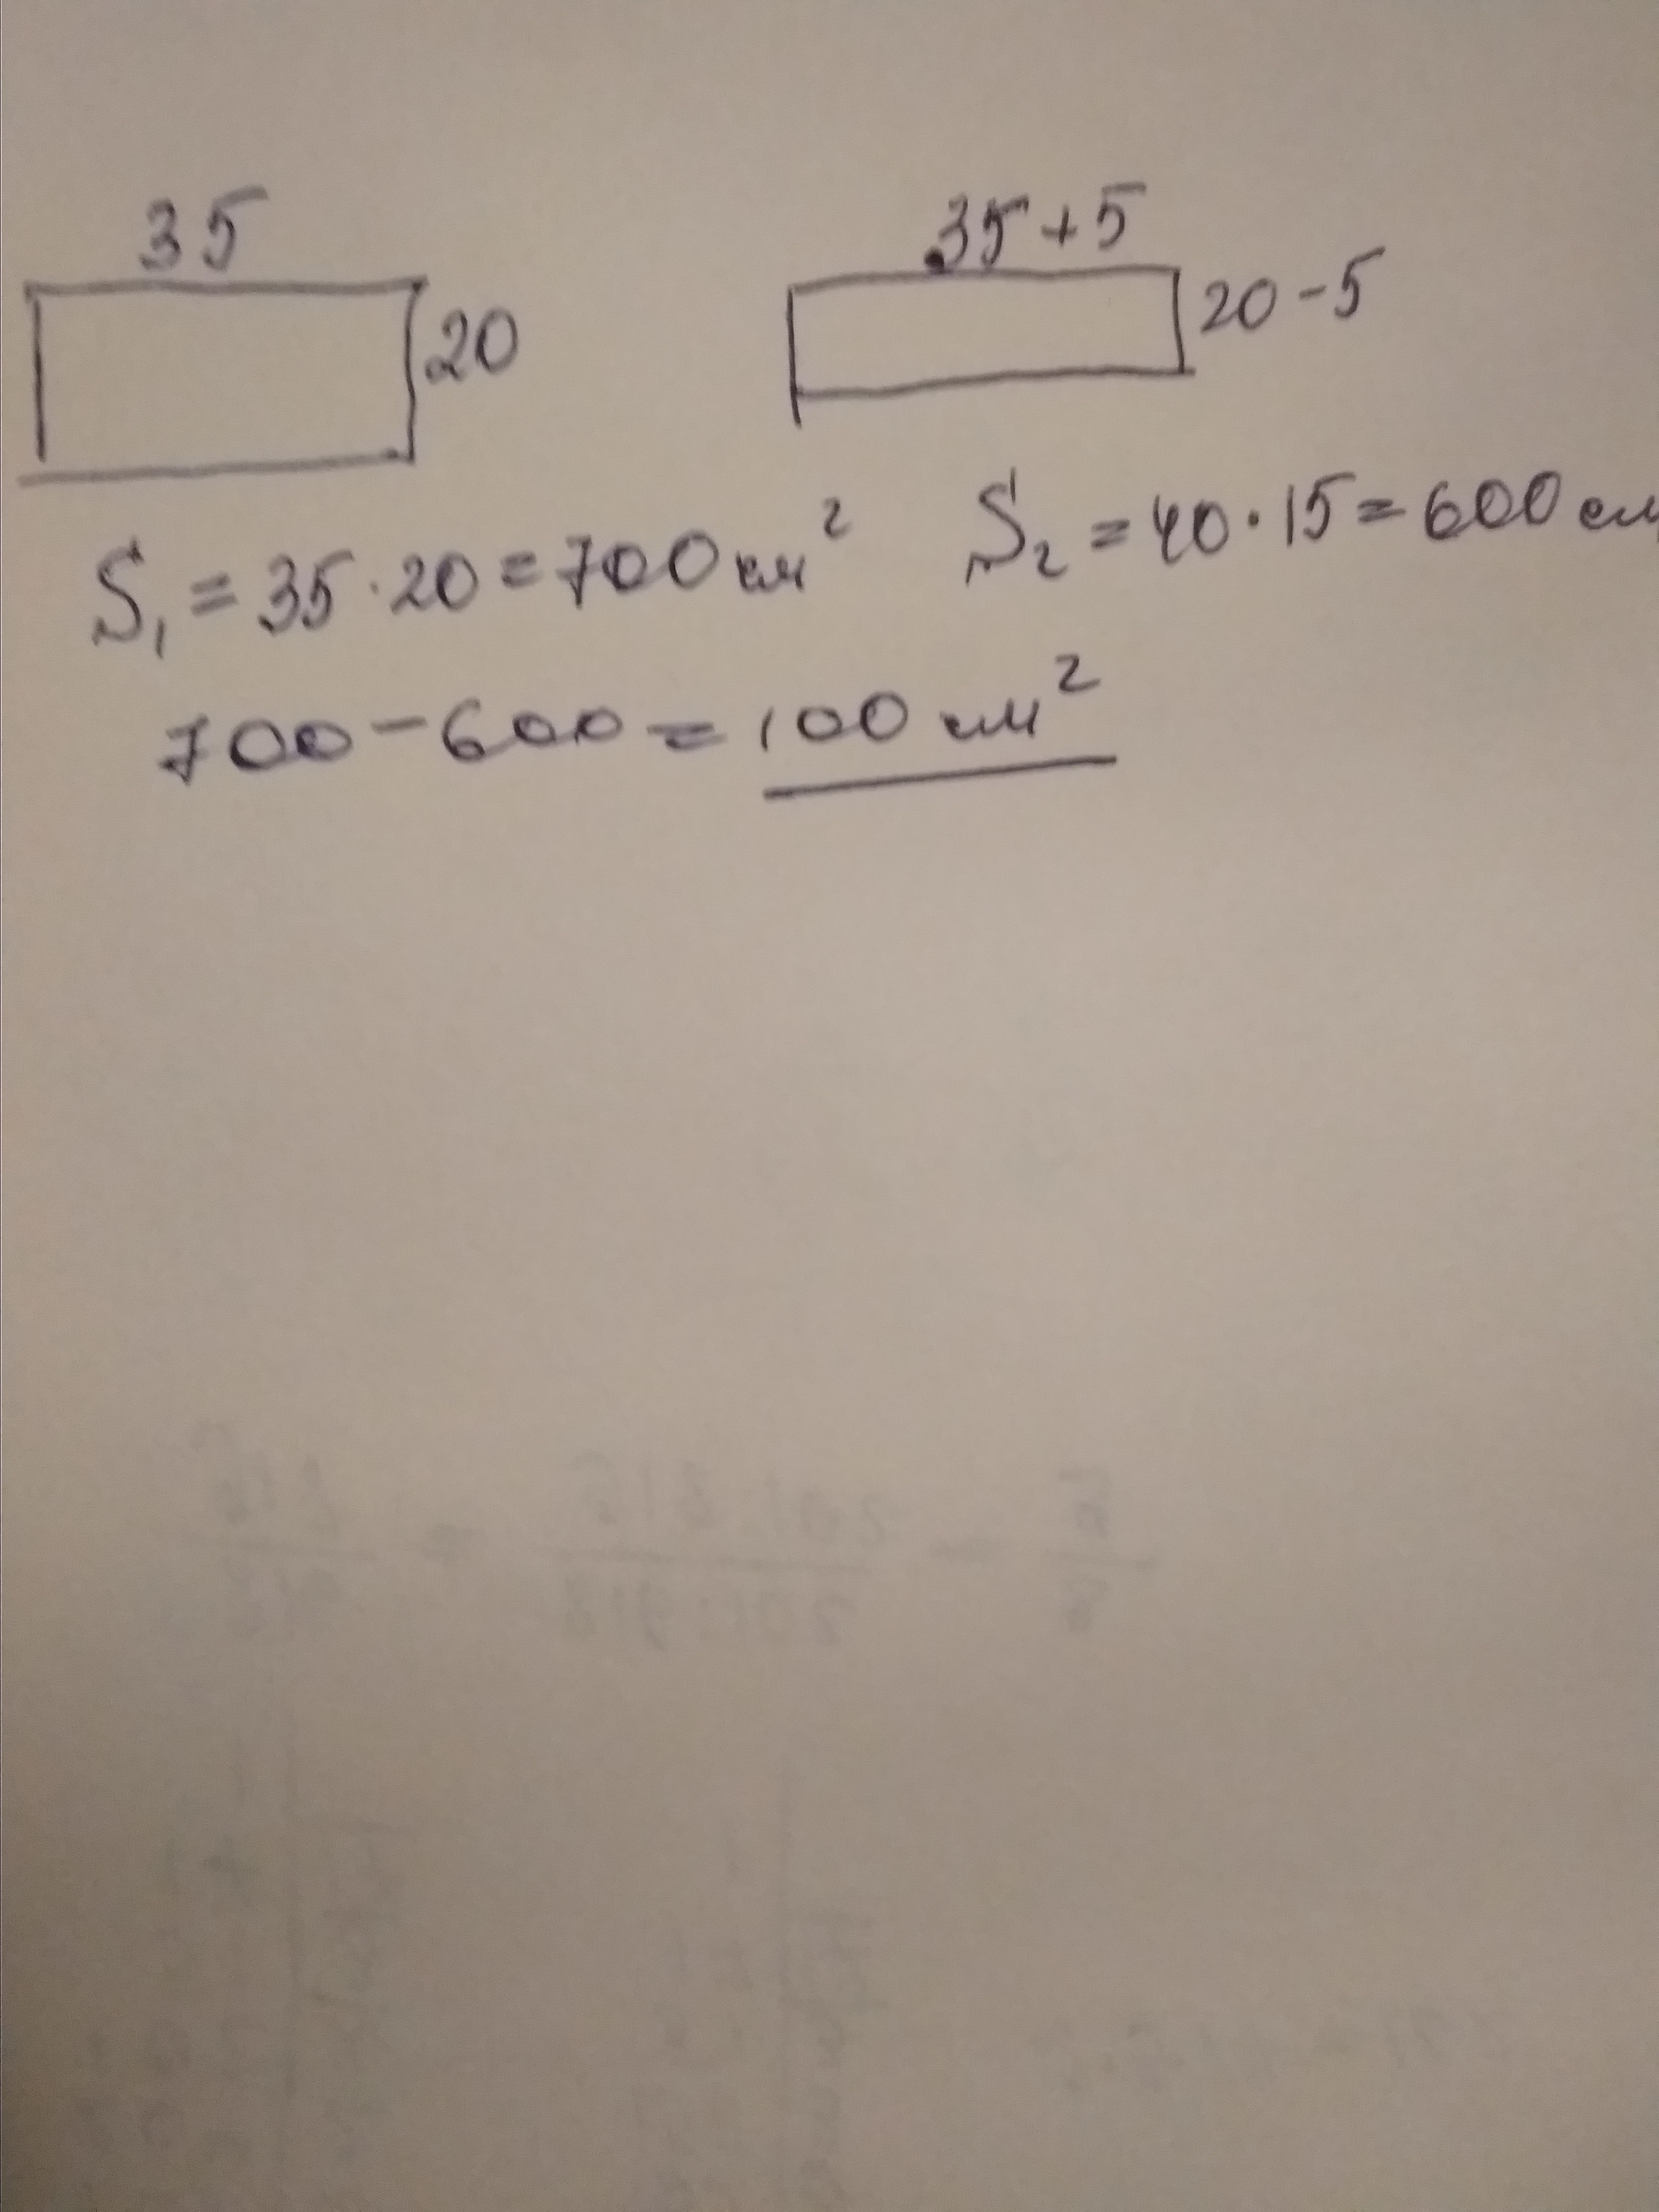 35
20
35+5
20-5
S₁ = 35·20=700 см²
S₂ = 40·15=600 см
700-600= 100 см²